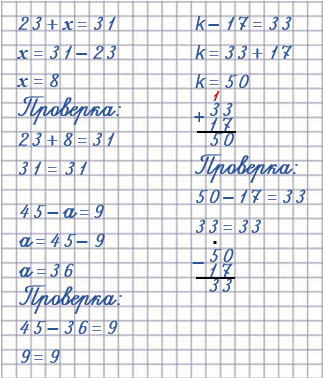 23+x=31
x=31-23
x=8
Проверка:
23+8=31
31=31
45-a=9
a=45-9
a=36
Проверка:
45-36=9
9=9
k-17=33
k=33+17
k=50
1
+33
17
50
Проверка:
50-17=33
33=33
-50
17
33